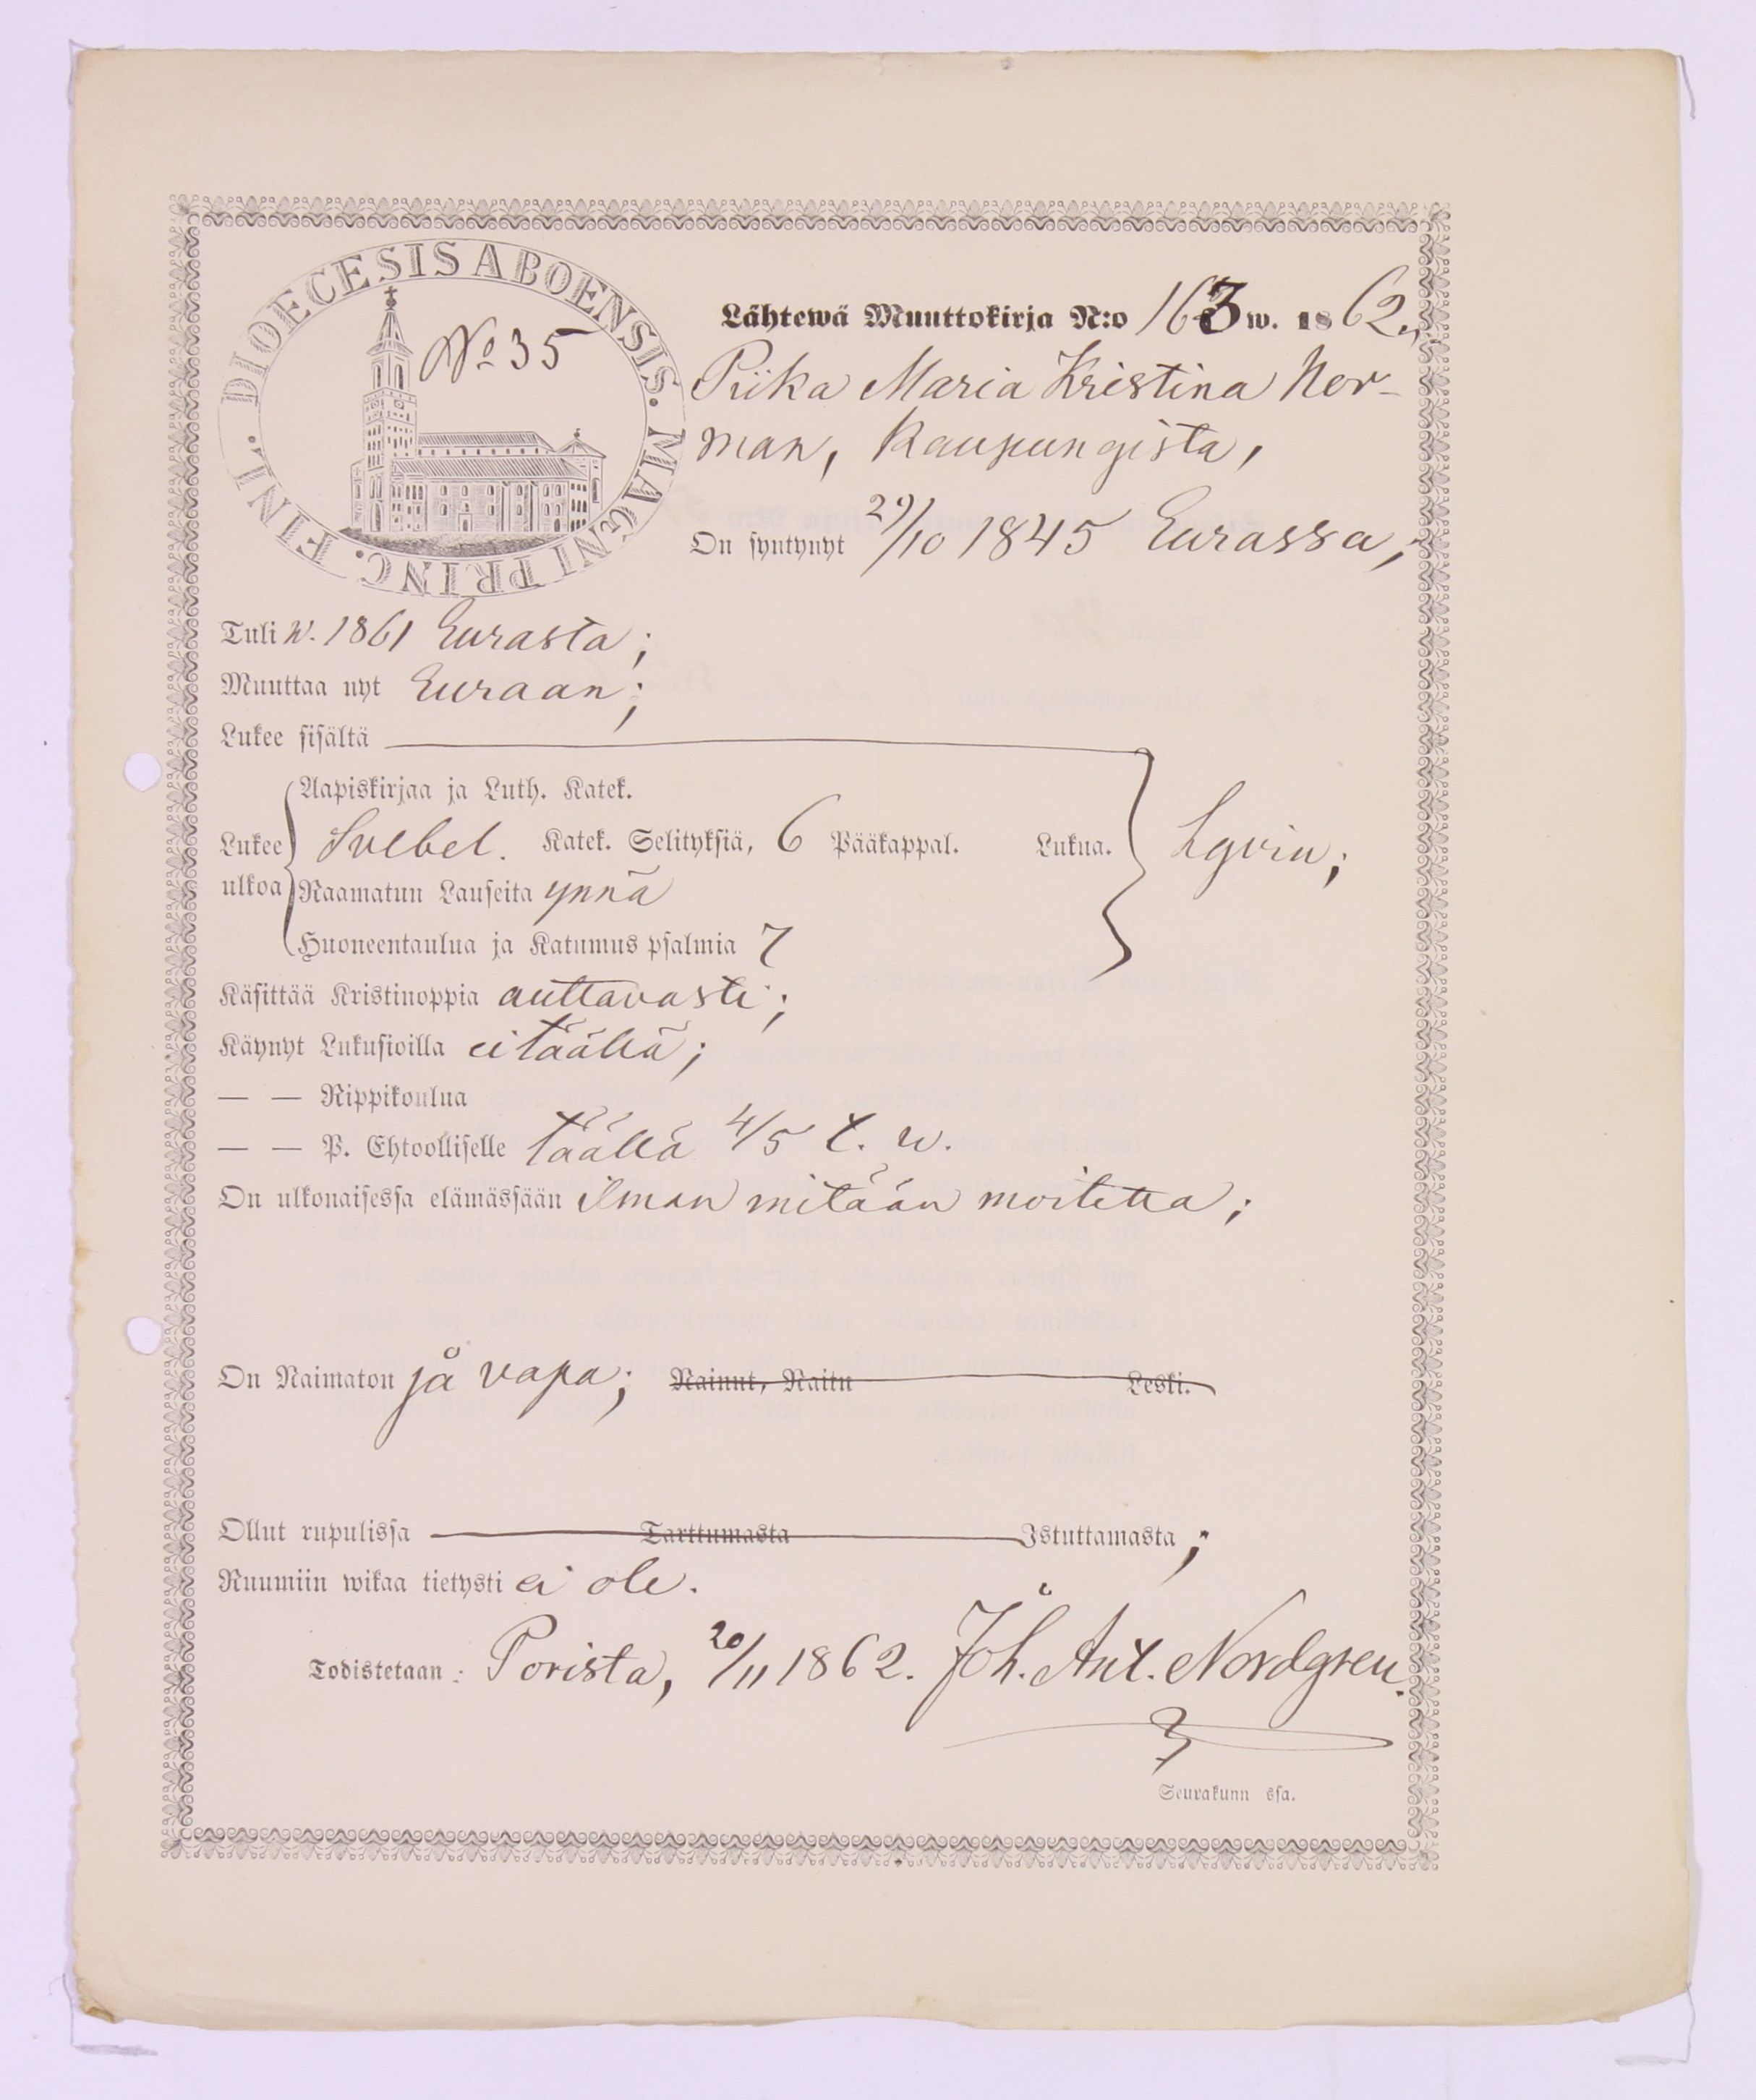 DIOECESIS ABOENSIS. MAGNI PRINC. FINL.
No 35
Lähtewä Muuttokirja N:o 163 w. 1862.,
Piika Maria Kristina Nor-
man, Kaupungista,
On syntynyt 29/10 1845 Eurassa;
Tuli w. 1861 Eurasta;
Muuttaa nyt Euraan;
Lukee sisältä
Aapiskirjaa ja Luth. Katek.
Lukee ulkoa Svebel. Katek. Selityksiä, 6 Pääkappal. Lukua.
Raamatun Lauseita ynnä
Huoneentaulua ja Katumus psalmia 7
Käsittää Kristinoppia auttavasti;
Käynyt Lukusioilla ei täällä;
— — Rippikoulua
— — P. Ehtoolliselle täällä 4/5 t. w.
On ulkonaisessa elämässään ilman mitään moitetta;
On Naimaton ja vapa; Nainut, Naitu Leski.
Ollut rupulissa Tarttumasta Istuttamasta;
Ruumiin wikaa tietysti ei ole.
Todistetaan: Porista, 20/11 1862. Joh. Ant. Nordgren.
Seurakunn ssa.